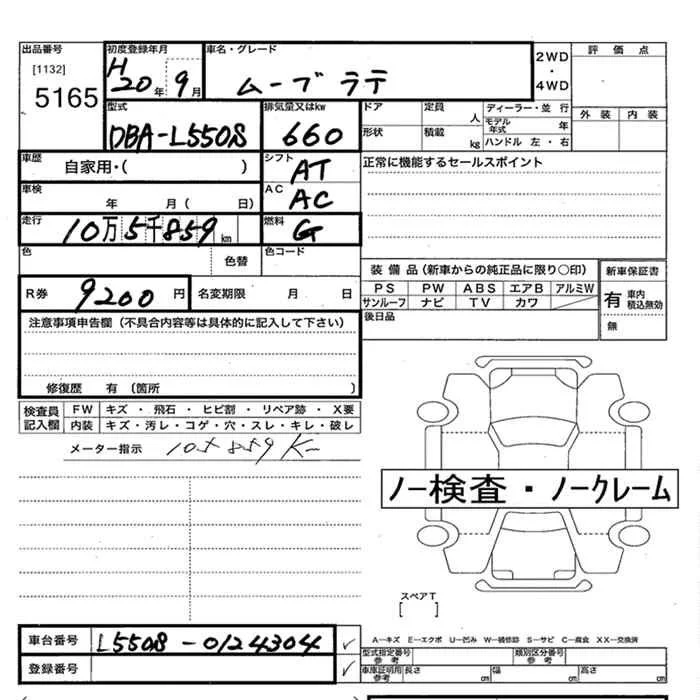 出品番号 初度登録年月 車名・グレード 2WD・4WD 評価点
[1132] H20年9月 ムーブ ラテ
5165
型式 排気量又はkw ドア 定員 人 ディーラー・並行 外装 内装
DBA-L550S 660 形状 積載 kg モデル年式 年 ハンドル 左・右
車歴 自家用・( ) シフト AT 正常に機能するセールスポイント
車検 年 月( 日) AC AC
走行 10万5千859km 燃料 G
色 色替 色コード
装備品(新車からの純正品に限り○印) 新車保証書
PS PW ABS エアB アルミW 有 車内積込無効
サンルーフ ナビ TV カワ
R券 9200円 名変期限 月 日
後日品 無
注意事項申告欄(不具合内容等は具体的に記入して下さい)
修復歴 有(箇所 )
検査員記入欄 FW キズ・飛石・ヒビ割・リペア跡・X要
内装 キズ・汚レ・コゲ・穴・スレ・キレ・破レ
メーター指示 105859K
ノー検査・ノークレーム
スペアT
[ ]
車台番号 L550S-0124304 ✓
A―キズ E―エクボ U―凹み W―補修跡 S―サビ C―腐食 XX―交換済
登録番号 ✓
型式指定番号 参考 類別区分番号 参考
車庫証明用 参考 長さ cm 幅 cm 高さ cm